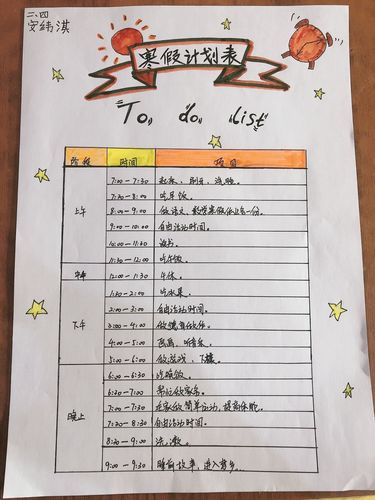 二、四
安纬淇
寒假计划表
To do list
阶段 时间 项目
上午
7:00-7:30 起床、刷牙、洗脸。
7:30-8:00 吃早饭。
8:00-9:00 做语文、数学寒假作业各一份。
9:00-10:00 自由活动时间。
10:00-11:30 读书。
11:30-12:00 吃午饭。
中午 12:00-1:30 午休。
下午
1:30-2:00 吃水果。
2:00-3:00 自由活动时间。
3:00-4:00
4:00-5:00 画画、听音乐。
5:00-6:00 做游戏、下棋。
晚上
6:00-6:30 吃晚饭。
6:30-7:00 帮忙做家务。
7:00-7:30 在家做简单运动，提高体能。
7:30-8:30 自由活动时间。
8:30-9:00 洗漱。
9:00-9:30 睡前故事，进入梦乡...